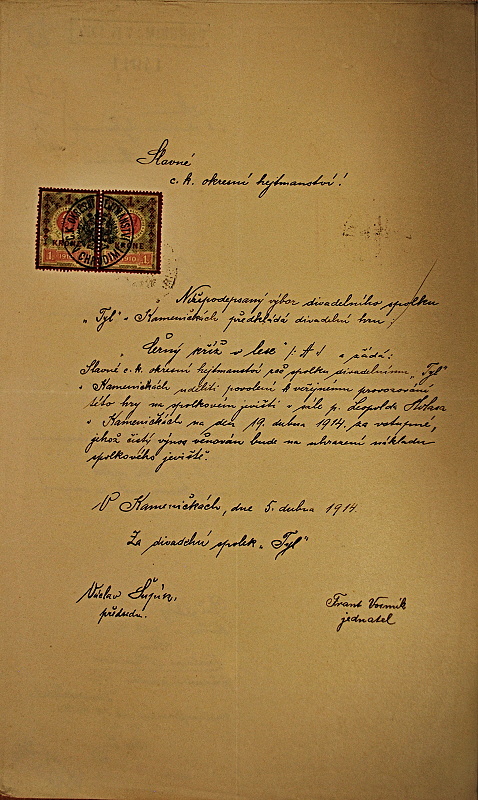 Slavné
c. k. okresní hejtmanství!
1 1
KRONE KRONE
1 1910 1910 1
C. K. OKRESNÍ HEJTMANSTVÍ
CHRUDIM
Nížepodepsaný výbor divadelního spolku
„Tyl" v Kameničkách předkládá divadelní hru:
„Černý kříž v lese" /: A :/ a žádá:
Slavné c. k. okresní hejtmanství račiž spolku divadelnímu „Tyl"
v Kameničkách uděliti povolení k veřejnému provozování
této hry na spolkovém jevišti v sále p. Leopolda
v Kameničkách na den 19. dubna 1914, za vstupné,
jehož čistý výnos věnován bude na uhrazení nákladu
spolkového jeviště.
V Kameničkách, dne 5. dubna 1914.
Za divadelní spolek „Tyl"
Václav
předseda.
Frant
jednatel